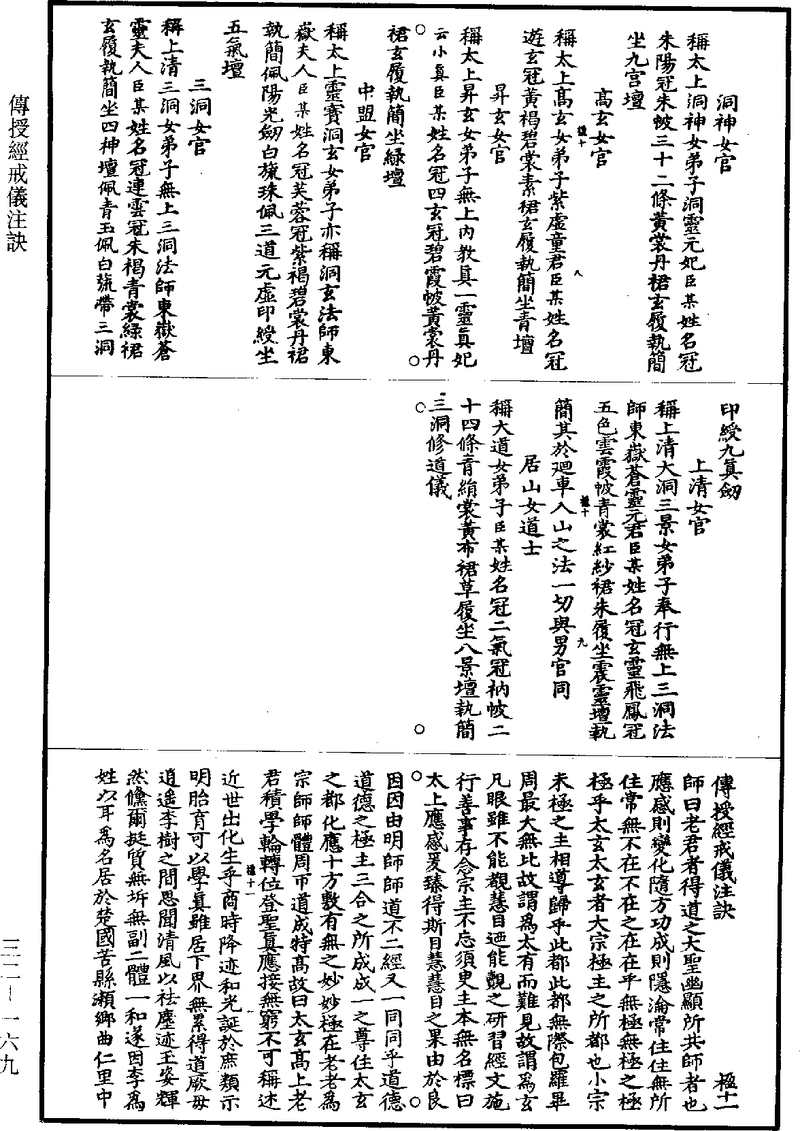 洞神女官
稱太上洞神女弟子洞靈元妃臣某姓名冠
朱陽冠朱帔三十二條黃裳丹裙玄履執簡
坐九宮壇
高玄女官
稱太上高玄女弟子紫虛童君臣某姓名冠
遊玄冠黃褐碧裳素裙玄履執簡坐青壇
昇玄女官
稱太上昇玄女弟子無上內教真一靈真妃
云小真臣某姓名冠四玄冠碧霞帔黃裳丹
裙玄履執簡坐綠壇
中盟女官
稱太上靈寶洞玄女弟子亦稱洞玄法師東
嶽夫人臣某姓名冠芙蓉冠紫褐碧裳丹裙
執簡佩陽光劒白旒珠佩三道元虛印綬坐
五氣壇
三洞女官
稱上清三洞女弟子無上三洞法師東嶽蒼
靈夫人臣某姓名冠連雲冠朱褐青裳綠裙
玄履執簡坐四神壇佩青玉佩白旒帶三洞
印綬九真劒
上清女官
稱上清大洞三景女弟子奉行無上三洞法
師東嶽蒼靈元君臣某姓名冠玄靈飛鳳冠
五色雲霞帔青裳紅紗裙朱履坐震靈壇執
簡其於廻車入山之法一切與男官同
居山女道士
稱大道女弟子臣某姓名冠二氣冠衲帔二
十四條青絹裳黃布裙草履坐八景壇執簡
三洞修道儀
傳授經戒儀注訣 楹十一
師曰老君者得道之大聖幽顯所共師者也
應感則變化隨方功成則隱淪常住住無所
住常無不在不在之在在乎無極無極之極
極乎太玄太玄者大宗極主之所都也小宗
未極之主相導歸乎此都此都無際包羅畢
周最大無比故謂為太有而難見故謂為玄
凡眼雖不能覩慧目迺能觀之研習經文施
行善事存念宗主不忘須臾主本無名標曰
太上應感爰臻得斯目慧慧目之果由於良
因因由明師師道不二經又一同同乎道德
道德之極主三合之所成成一之尊住太玄
之都化應十方數有無之妙妙極在老老為
宗師師體周帀道成特高故曰太玄高上老
君積學輪轉位登聖真應接無窮不可稱述
近世出化生乎商時降迹和光誕於庶類示
明胎育可以學真雖居下界無累得道厥母
逍遙李樹之間思聞清風以祛塵迹玉姿輝
然儵爾挺質無坼無副二體一和遂因李為
姓以耳為名居於楚國苦縣瀨鄉曲仁里中
傳授經戒儀注訣
三二－一六九